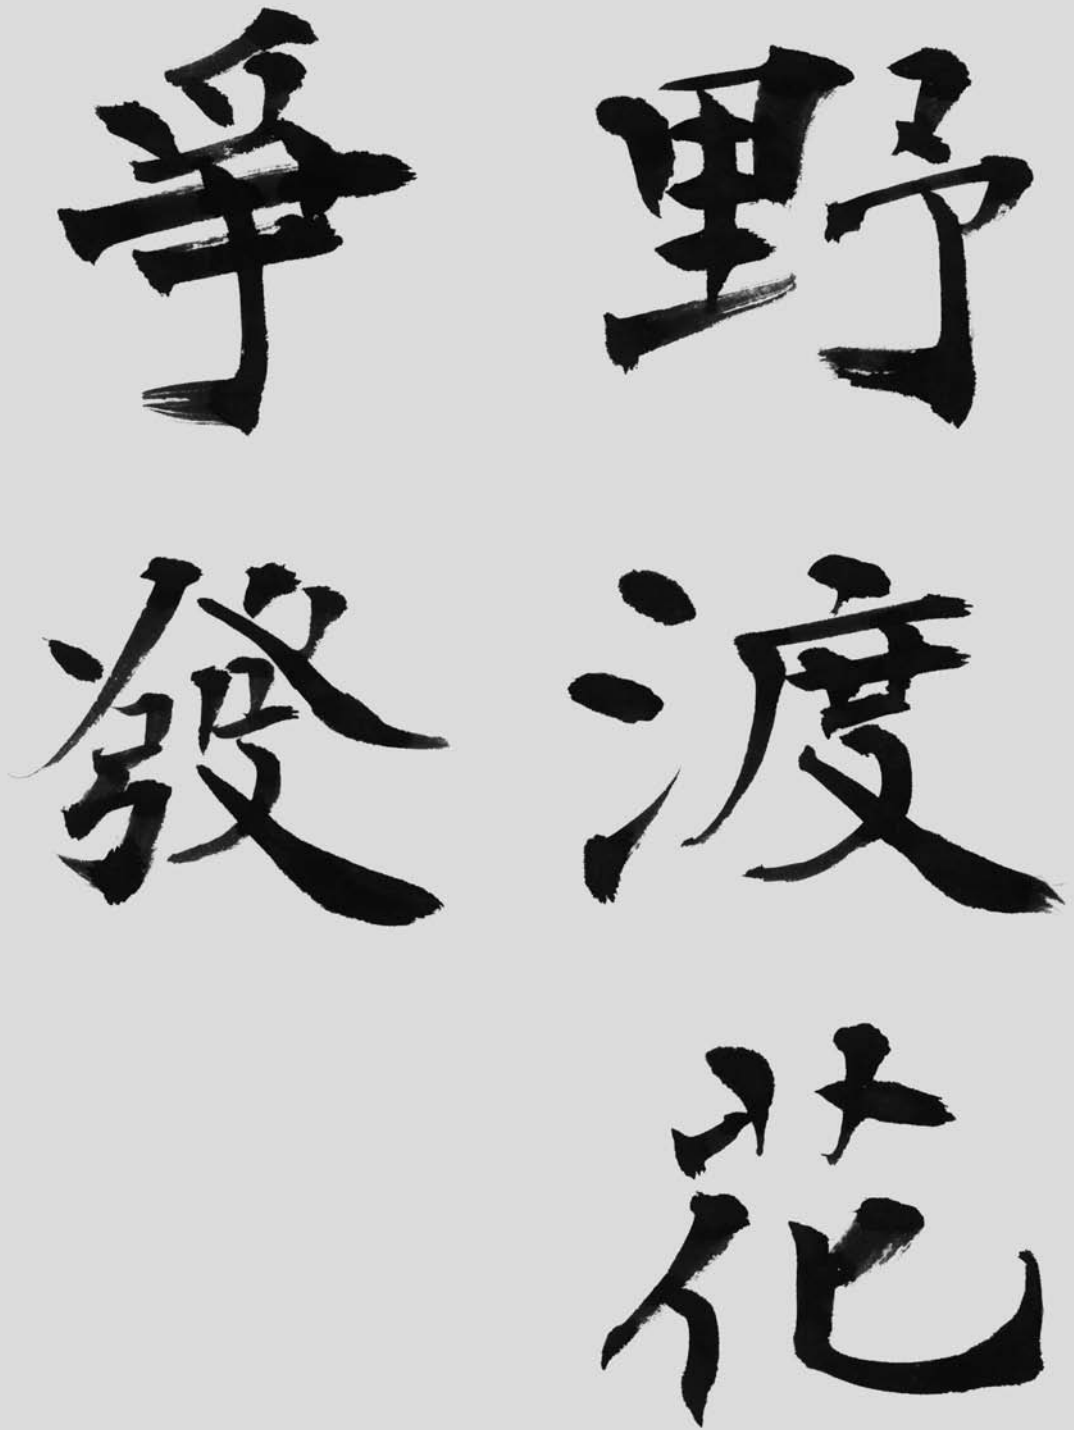 野渡花
爭發